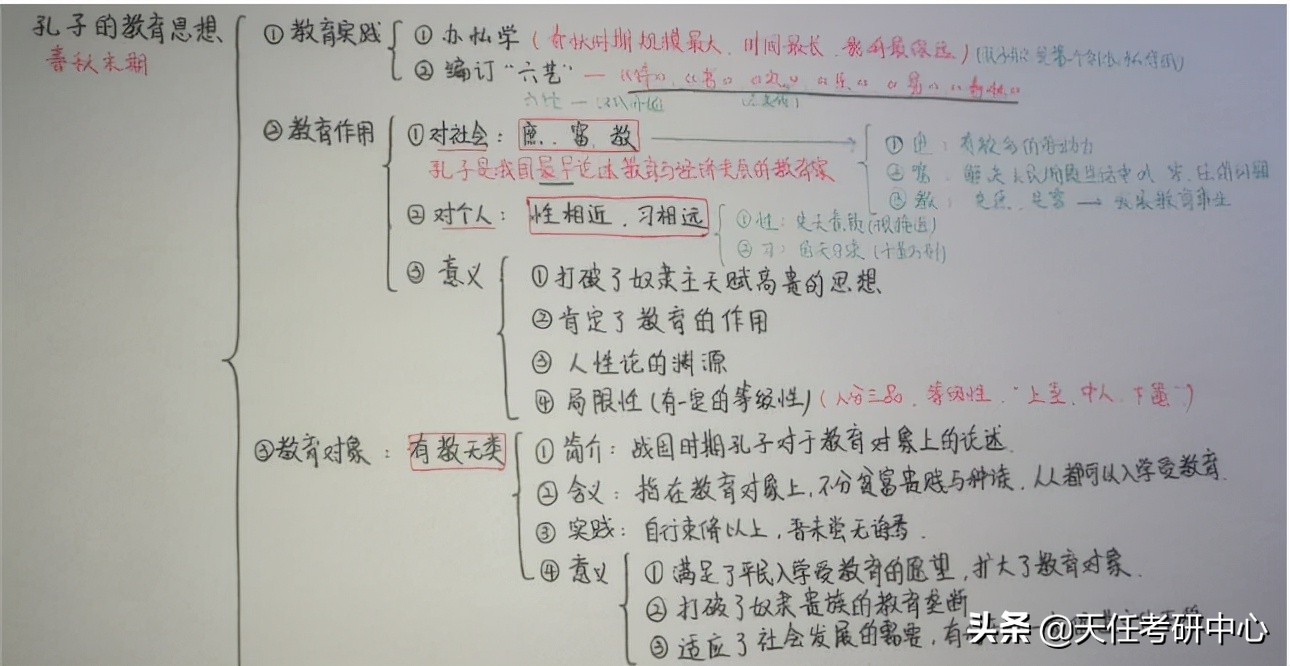 孔子的教育思想
春秋末期
① 教育实践
① 办私学 (春秋时期规模最大、时间最长、影响最深远)
② 编订“六艺” — 《诗》《书》《礼》《乐》《易》《春秋》
② 教育作用
① 对社会： 庶、富、教
① 庶： 有较多的劳动力
② 富：
③ 教： 先庶、先富 → 发展教育事业
孔子是我国最早论述教育与经济关系的教育家
② 对个人： 性相近、习相远
① 性： 先天素质
② 习： 后天习染
③ 意义
① 打破了奴隶主天赋高贵的思想
② 肯定了教育的作用
③ 人性论的渊源
④ 局限性 (有一定的等级性) (人分三品、等级性、“上
中人、下愚”)
③ 教育对象 ： 有教无类
① 简介： 战国时期孔子对于教育对象上的论述.
② 含义： 指在教育对象上，不分贫富贵贱与种族，人人都可以入学受教育.
③ 实践： 自行束脩以上，吾未尝无诲焉.
④ 意义
① 满足了平民入学受教育的愿望，扩大了教育对象.
② 打破了奴隶贵族的教育垄断
③ 适应了社会发展的需要，有
头条 @天任考研中心